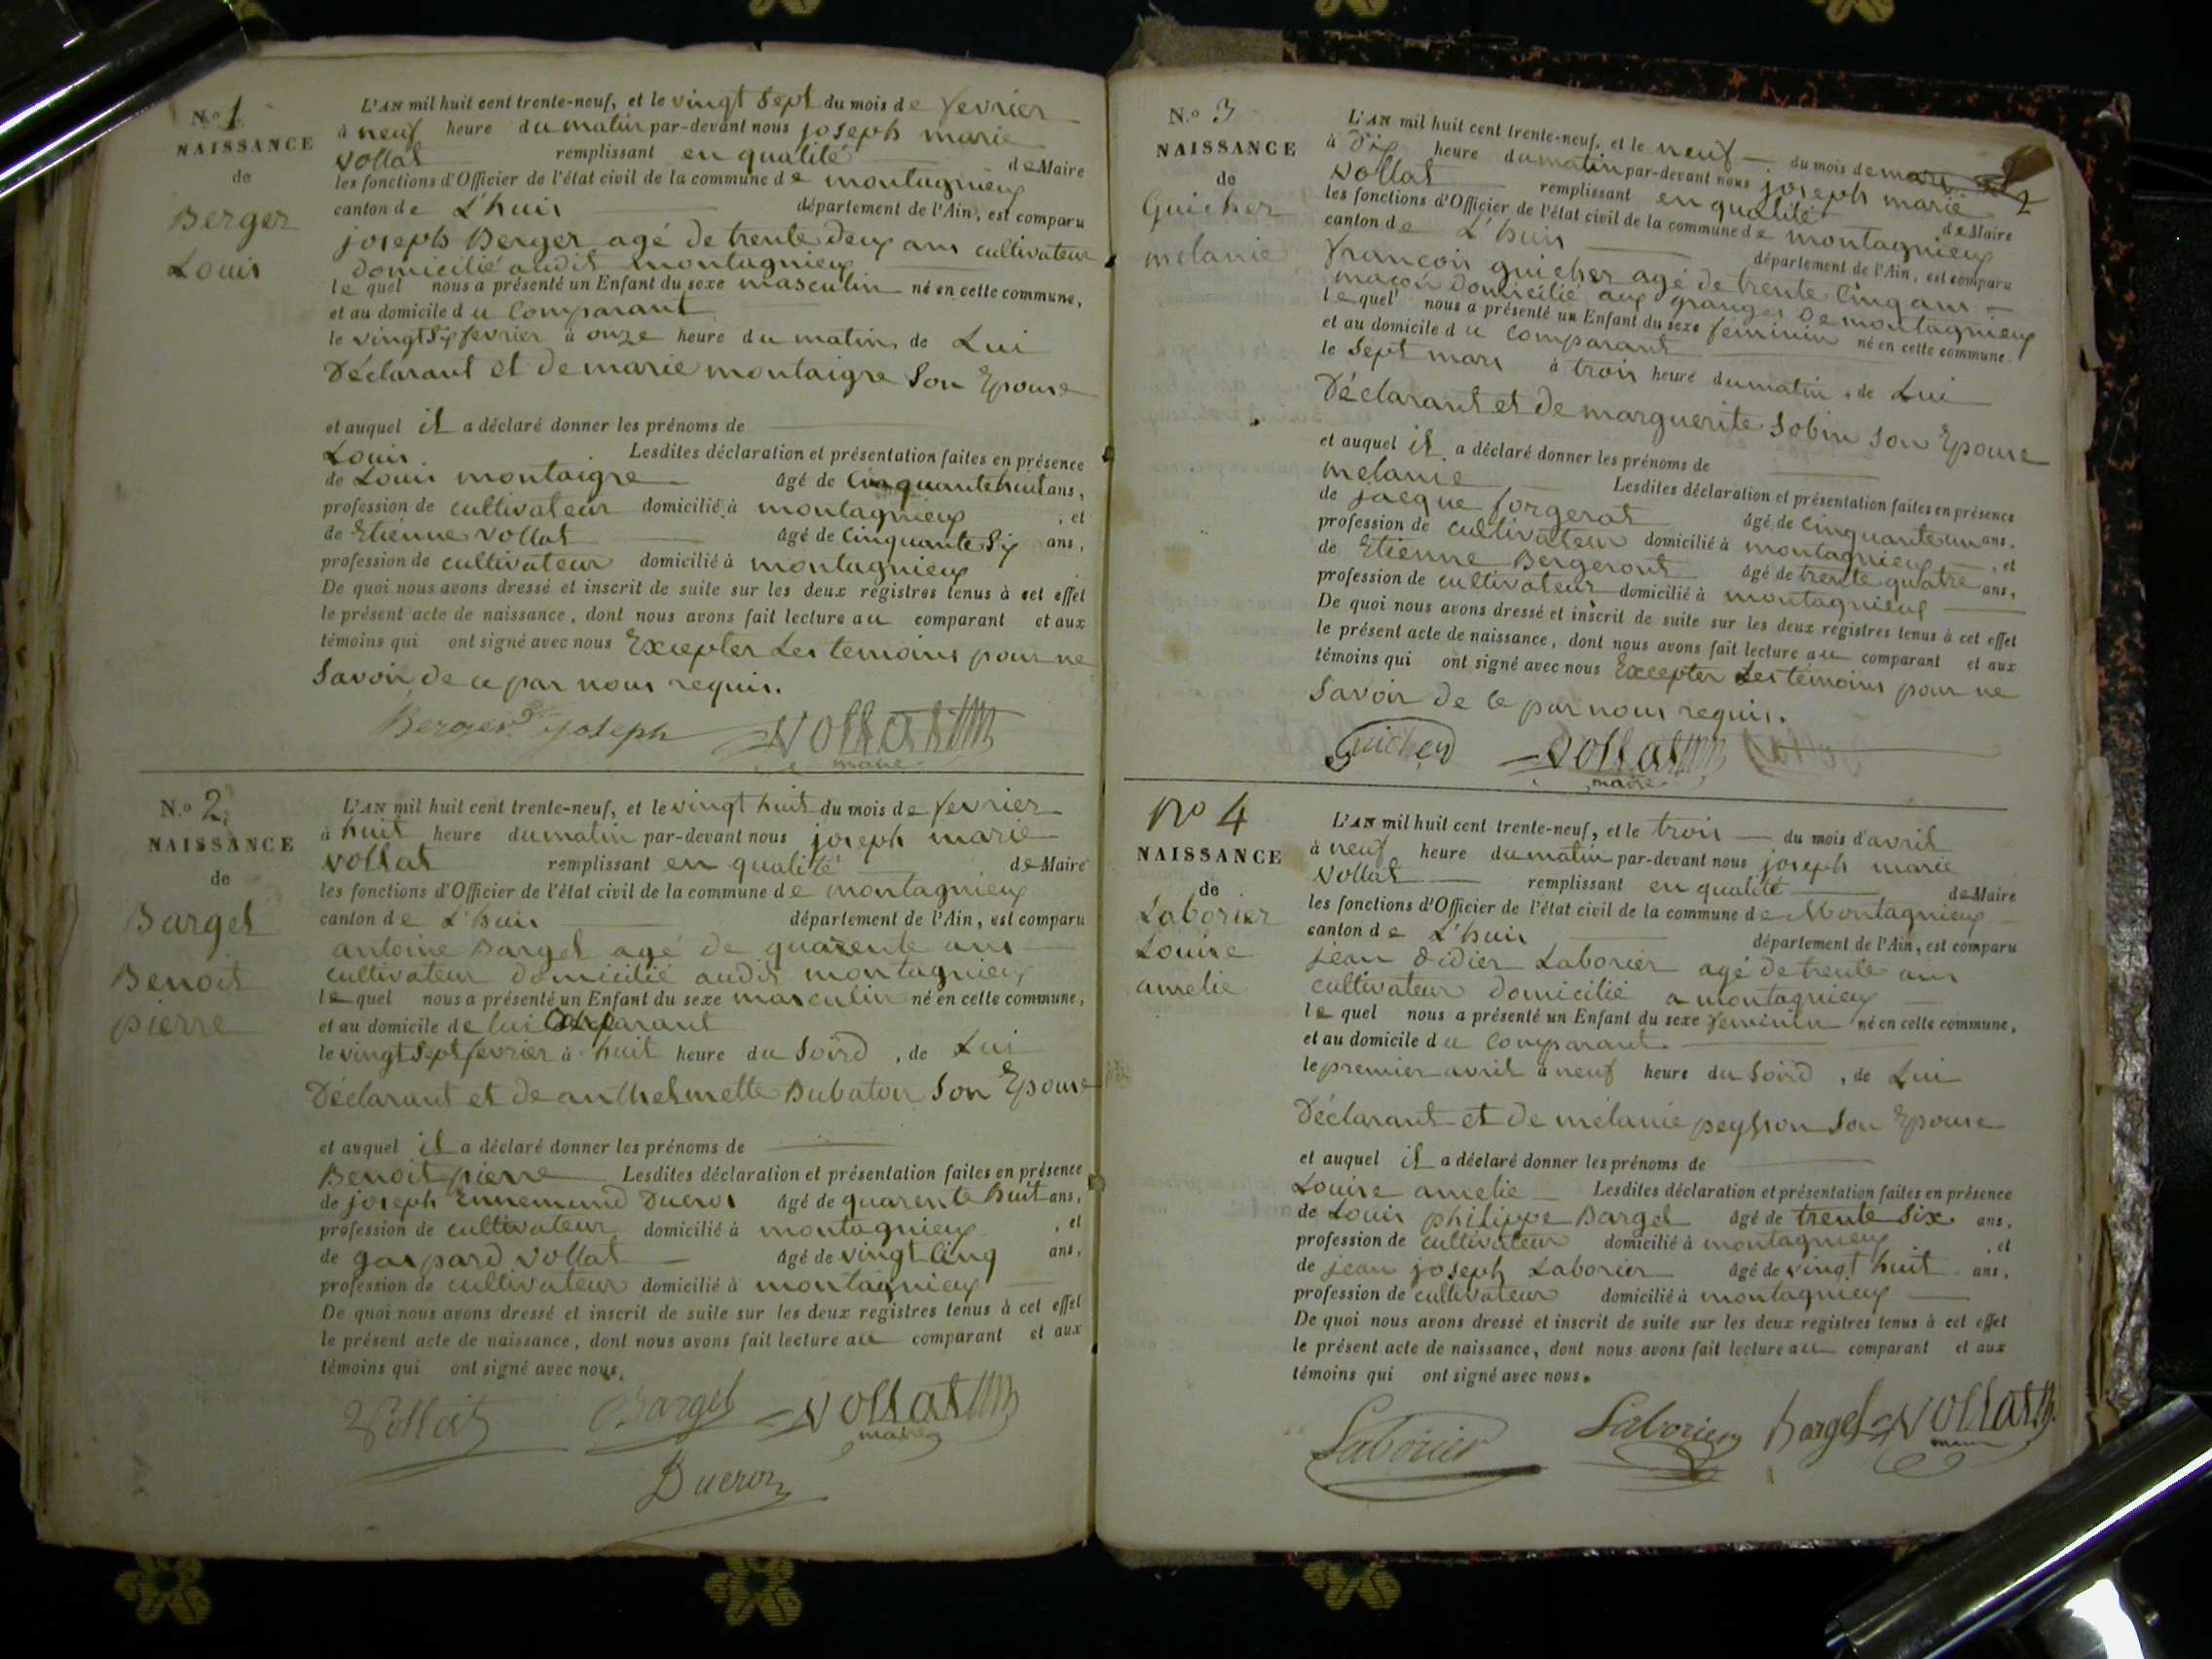 N.º 1
NAISSANCE
de
Berger
Louis
L'AN mil huit cent trente-neuf, et le vingt sept du mois de fevrier
à neuf heure du matin par-devant nous joseph marie
vollat remplissant en qualité de Maire
les fonctions d'Officier de l'état civil de la commune de montagnieux
canton de L'huis département de l'Ain, est comparu
joseph Berger agé de trente deux ans cultivateur
domicilié audit montagnieux
lequel nous a présenté un Enfant du sexe masculin né en cette commune,
et au domicile du Comparant
le vingt Six fevrier à onze heure du matin, de Lui
Déclarant et de marie montaigre Son Epouse
et auquel il a déclaré donner les prénoms de
Louis Lesdites déclaration et présentation faites en présence
de Louis montaigre âgé de Cinquante huit ans,
profession de cultivateur domicilié à montagnieux, et
de Etienne vollat âgé de Cinquante Six ans,
profession de cultivateur domicilié à montagnieux
De quoi nous avons dressé et inscrit de suite sur les deux registres tenus à cet effet
le présent acte de naissance, dont nous avons fait lecture au comparant et aux
témoins qui ont signé avec nous Excepter Les temoins pour ne
Savoir de ce par nous requis.
Berger joseph vollat
maire
N.º 2
NAISSANCE
de
Bargel
Benoit
pierre
L'AN mil huit cent trente-neuf, et le vingt huit du mois de fevrier
à huit heure du matin par-devant nous joseph marie
vollat remplissant en qualité de Maire
les fonctions d'Officier de l'état civil de la commune de montagnieux
canton de L'huis département de l'Ain, est comparu
antoine Bargel agé de quarente ans
cultivateur domicilié audit montagnieux
lequel nous a présenté un Enfant du sexe masculin né en cette commune,
et au domicile de lui Comparant
le vingt Sept fevrier à huit heure du Soird, de Lui
Déclarant et de anthelmette Dubaton Son Epouse
et auquel il a déclaré donner les prénoms de
Benoit pierre Lesdites déclaration et présentation faites en présence
de joseph Ennemund Ducros âgé de quarente huit ans,
profession de cultivateur domicilié à montagnieux, et
de gaspard vollat âgé de vingt Cinq ans,
profession de cultivateur domicilié à montagnieux
De quoi nous avons dressé et inscrit de suite sur les deux registres tenus à cet effet
le présent acte de naissance, dont nous avons fait lecture au comparant et aux
témoins qui ont signé avec nous.
Vollat Bargel vollat
maire
Ducroz
N.º 3
NAISSANCE
de
Guicher
melanie
2
L'AN mil huit cent trente-neuf, et le neuf du mois de mars
à Dix heure du matin par-devant nous joseph marie
vollat remplissant en qualité de Maire
les fonctions d'Officier de l'état civil de la commune de montagnieux
canton de L'huis département de l'Ain, est comparu
francois guicher agé de trente Cinq ans
maçon domicilié aux granges De montagnieux
lequel nous a présenté un Enfant du sexe féminin né en cette commune.
et au domicile du Comparant
le Sept mars à trois heure du matin, de Lui
Déclarant et de marguerite Sobin Son Epouse
et auquel il a déclaré donner les prénoms de
melanie Lesdites déclaration et présentation faites en présence
de jacque forgerat âgé de Cinquante un ans,
profession de cultivateur domicilié à montagnieux, et
de Etienne Bergeront âgé de trente quatre ans,
profession de cultivateur domicilié à montagnieux
De quoi nous avons dressé et inscrit de suite sur les deux registres tenus à cet effet
le présent acte de naissance, dont nous avons fait lecture au comparant et aux
témoins qui ont signé avec nous Excepter Les témoins pour ne
Savoir de ce par nous requis.
Guicher vollat
maire
No 4
NAISSANCE
de
Laborier
Louise
amelie
L'AN mil huit cent trente-neuf, et le trois du mois d'avril
à neuf heure du matin par-devant nous joseph marie
vollat remplissant en qualité de Maire
les fonctions d'Officier de l'état civil de la commune de Montagnieux
canton de L'huis département de l'Ain, est comparu
jean didier Laborier agé de trente ans
cultivateur domicilié a montagnieux
lequel nous a présenté un Enfant du sexe feminin né en cette commune,
et au domicile du Comparant
le premier avril à neuf heure du Soird, de Lui
Déclarant et de mélanie peysson Son Epouse
et auquel il a déclaré donner les prénoms de
Louise amelie Lesdites déclaration et présentation faites en présence
de Louis philippe Bargel âgé de trente Six ans,
profession de cultivateur domicilié à montagnieux, et
de jean joseph Laborier âgé de vingt huit ans,
profession de cultivateur domicilié à montagnieux
De quoi nous avons dressé et inscrit de suite sur les deux registres tenus à cet effet
le présent acte de naissance, dont nous avons fait lecture au comparant et aux
témoins qui ont signé avec nous.
Laborier Laborier Bargel vollat
maire